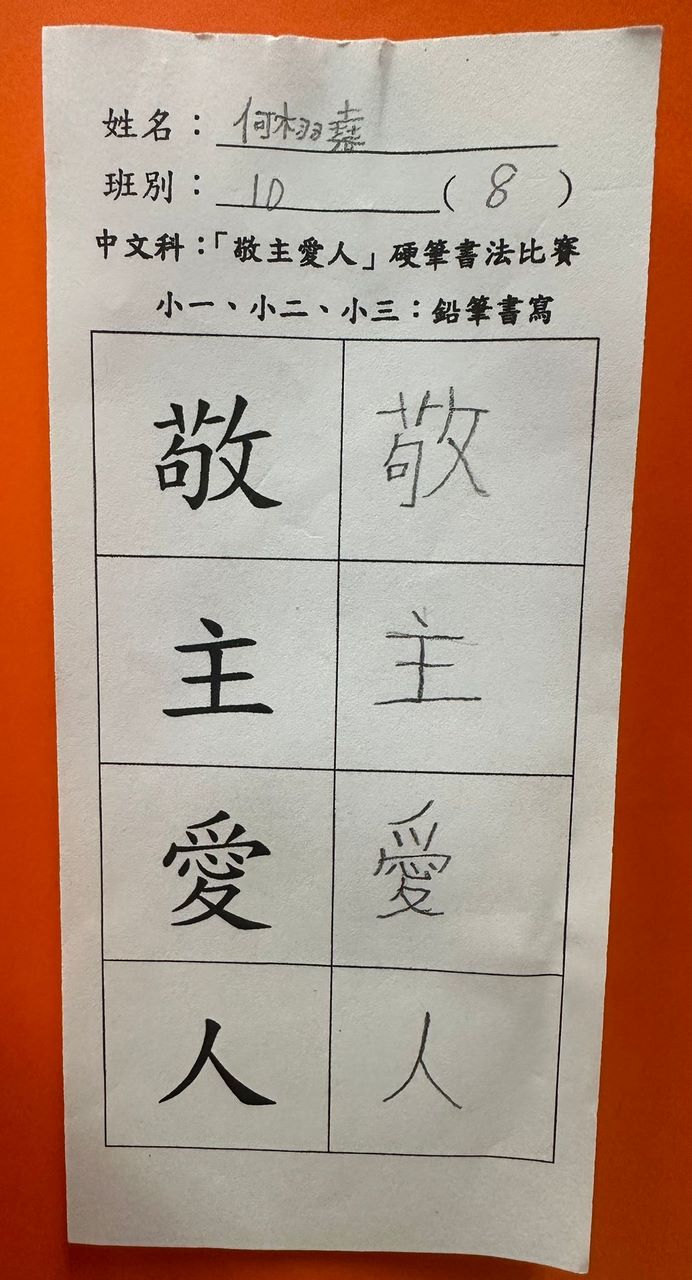 姓名：何栩嘉
班別：1D（8）
中文科：「敬主愛人」硬筆書法比賽
小一、小二、小三：鉛筆書寫
敬 敬
主 主
愛 愛
人 人